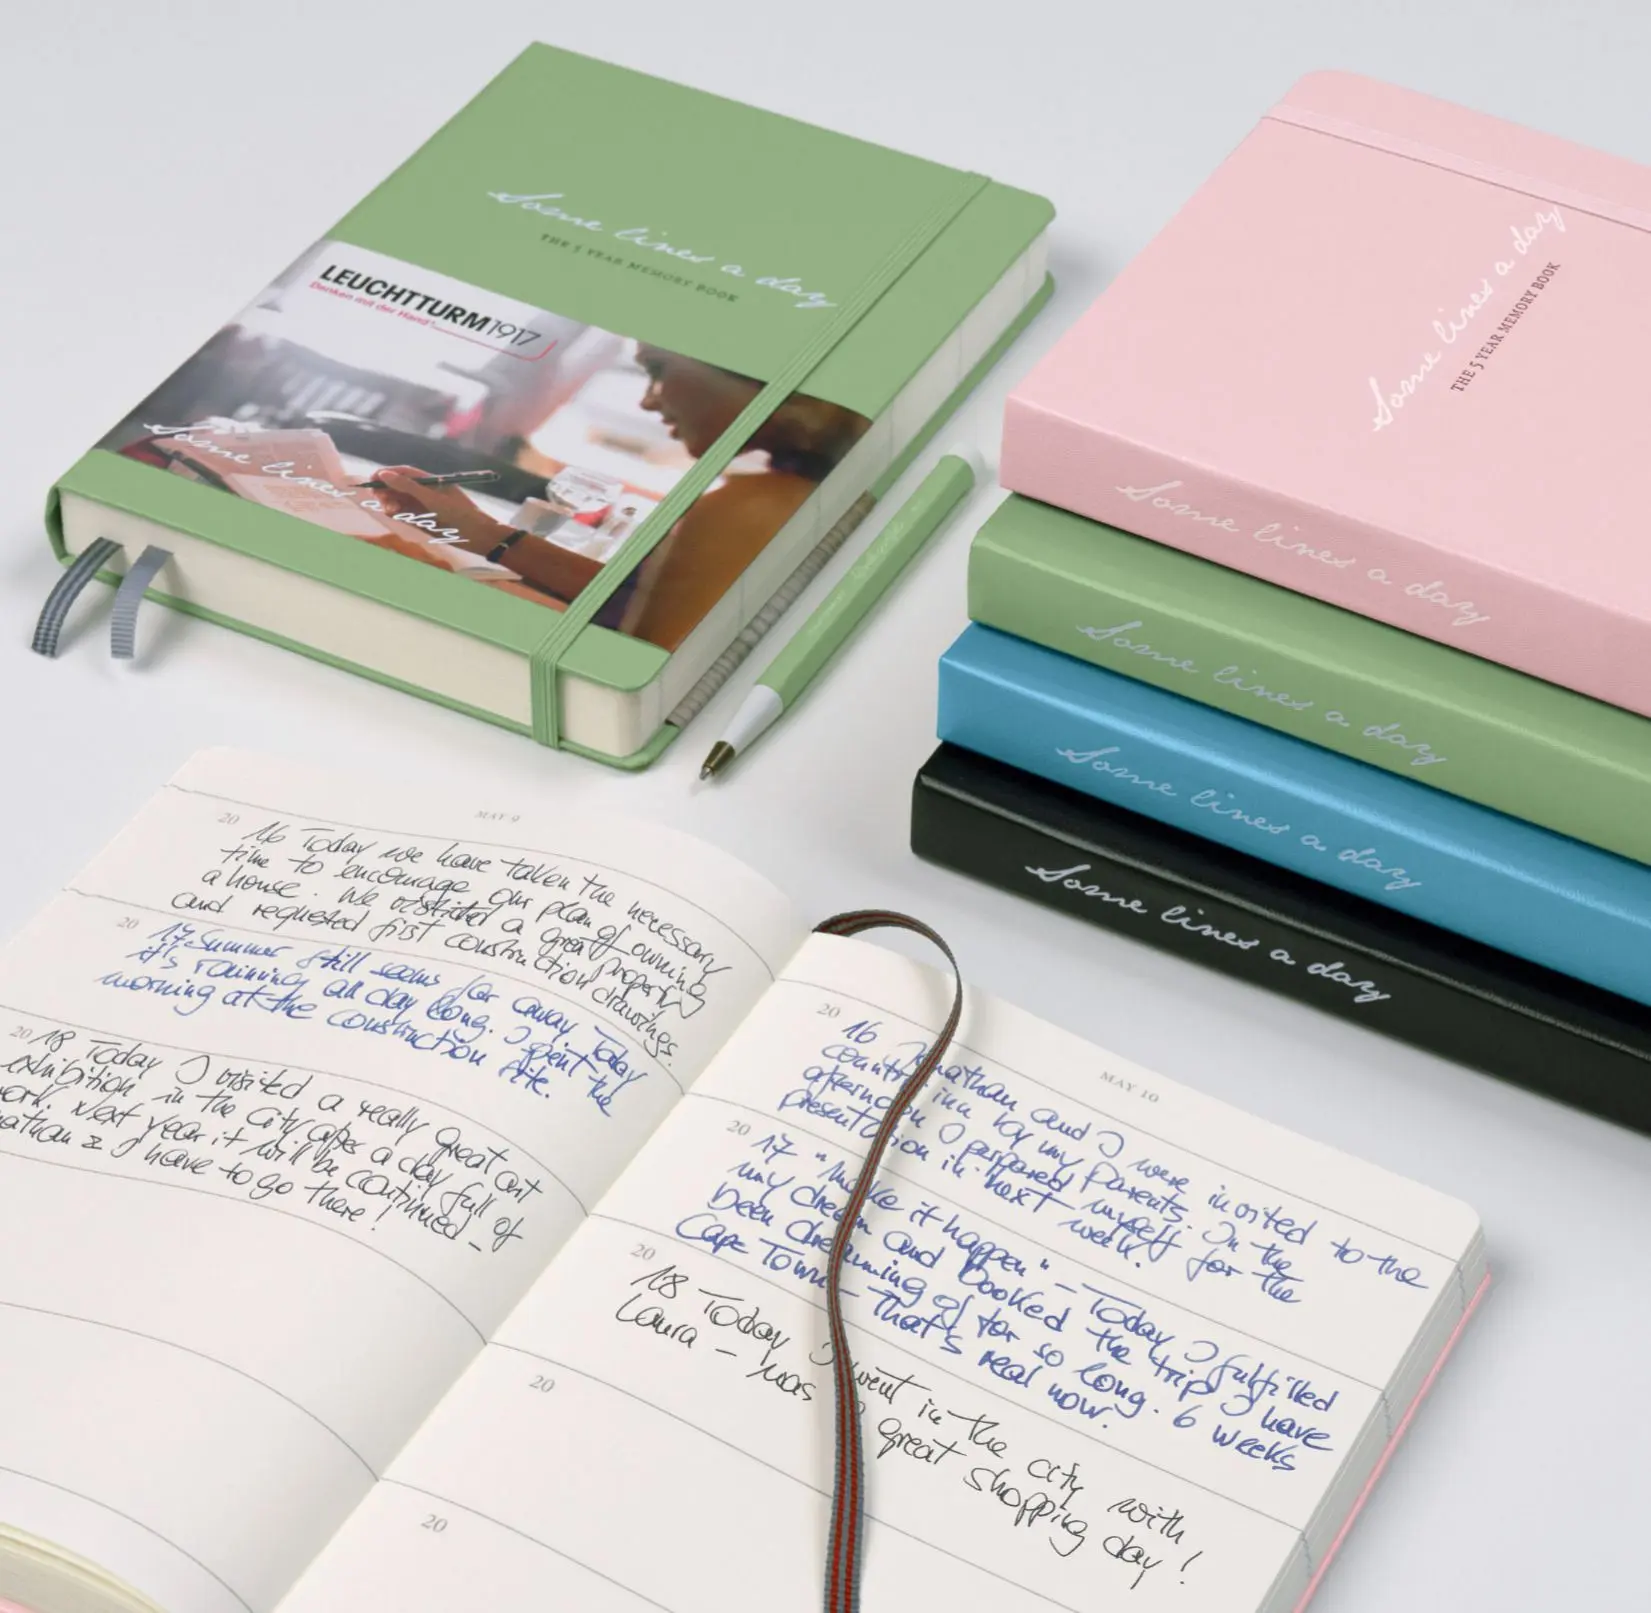 Some lines a day
THE 5 YEAR MEMORY BOOK
LEUCHTTURM1917
Denken mit der Hand
Some lines a day
Some lines a day
THE 5 YEAR MEMORY BOOK
Some lines a day
Some lines a day
Some lines a day
Some lines a day
MAY 9
20 16 Today we have taken the necessary
time to encourage our plan of owning
a house. We visited a great property
and requested first construction drawings.
20 17 Summer still seems far away. Today
it's raining all day long. I spent the
morning at the construction site.
20 18 Today I visited a really great art
exhibition in the city after a day full of
work. Next year it will be continued -
nathan & I have to go there!
MAY 10
20 16 Jonathan and I were invited to the
country inn by my parents. In the
afternoon I prepared myself for the
presentation in next week.
20 17 "Make it happen" - Today I fulfilled
my dream and booked the trip I have
been dreaming of for so long. 6 weeks
Cape Town - that's real now.
20 18 Today I went in the city with
Laura - was a great shopping day!
20
20